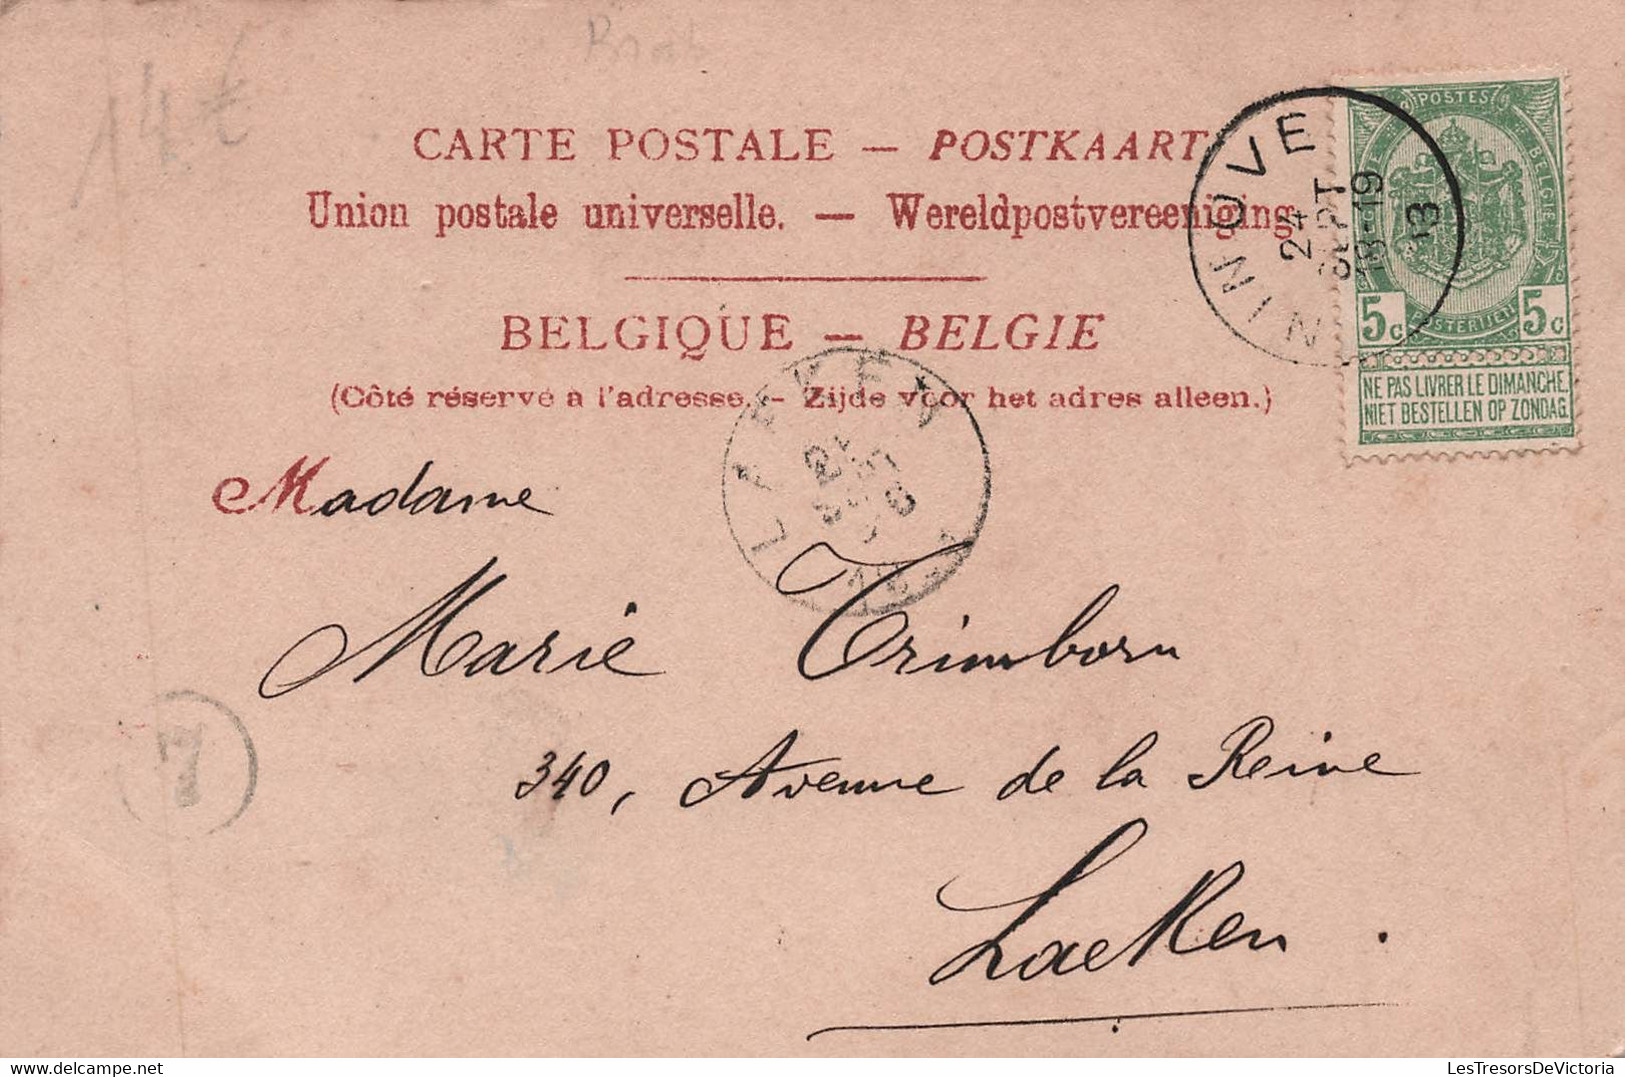 14 €
CARTE POSTALE — POSTKAART
Union postale universelle. — Wereldpostvereeniging.
BELGIQUE — BELGIE
(Côté réservé à l'adresse. - Zijde voor het adres alleen.)
NINOVE
24
SEPT
18-19
POSTES
BELGIQUE
BELGIE
POSTERIJEN
5c 5c
NE PAS LIVRER LE DIMANCHE.
NIET BESTELLEN OP ZONDAG.
LAEKEN
Madame
Marie Trimborn
7
340, Avenue de la Reine
Laeken.
LesTresorsDeVictoria
lestresorsdevictoria@hotmail.com